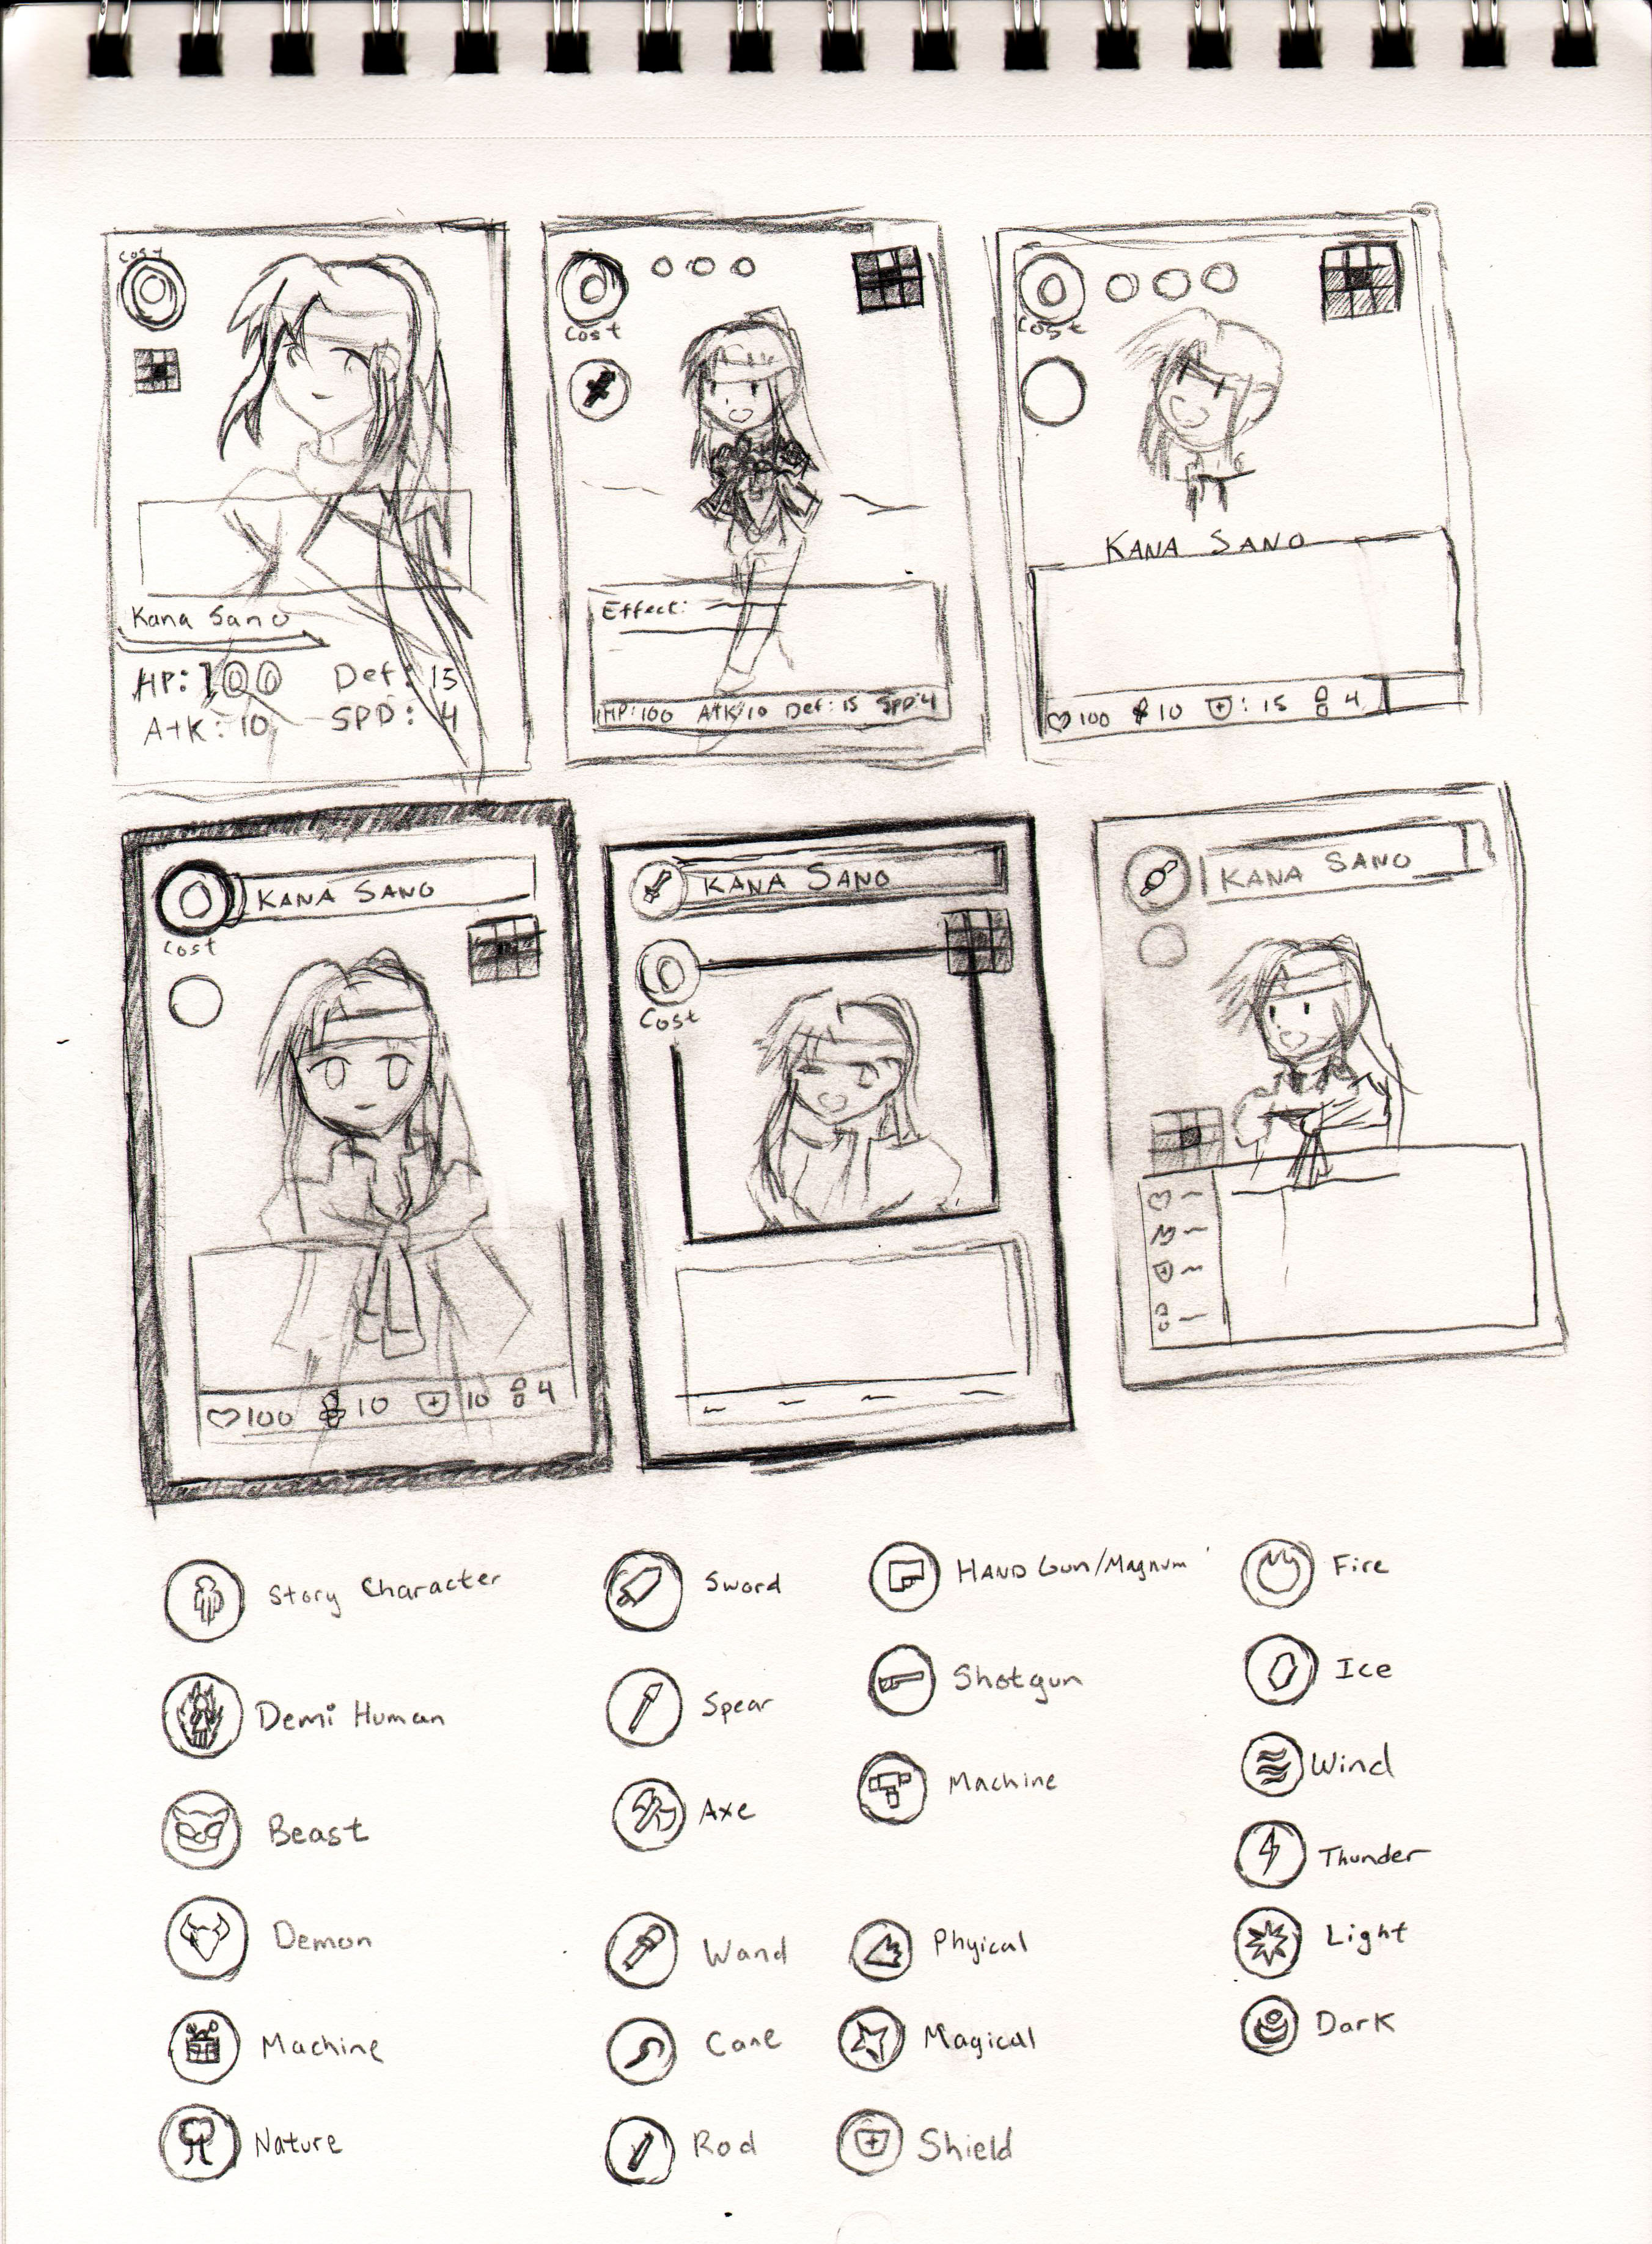 Cost
Kana Sano
HP: 100 Def: 15
Atk: 10 SPD: 4
Cost
Effect:
HP: 100 Atk 10 Def: 15 SPD: 4
Cost
KANA SANO
100 10 : 15 4
KANA SANO
Cost
100 10 10 4
KANA SANO
Cost
KANA SANO
Story Character
Demi Human
Beast
Demon
Machine
Nature
Sword
Spear
Axe
Wand
Cane
Rod
HAND Gun/Magnum
Shotgun
Machine
Phyical
Magical
Shield
Fire
Ice
Wind
Thunder
Light
Dark